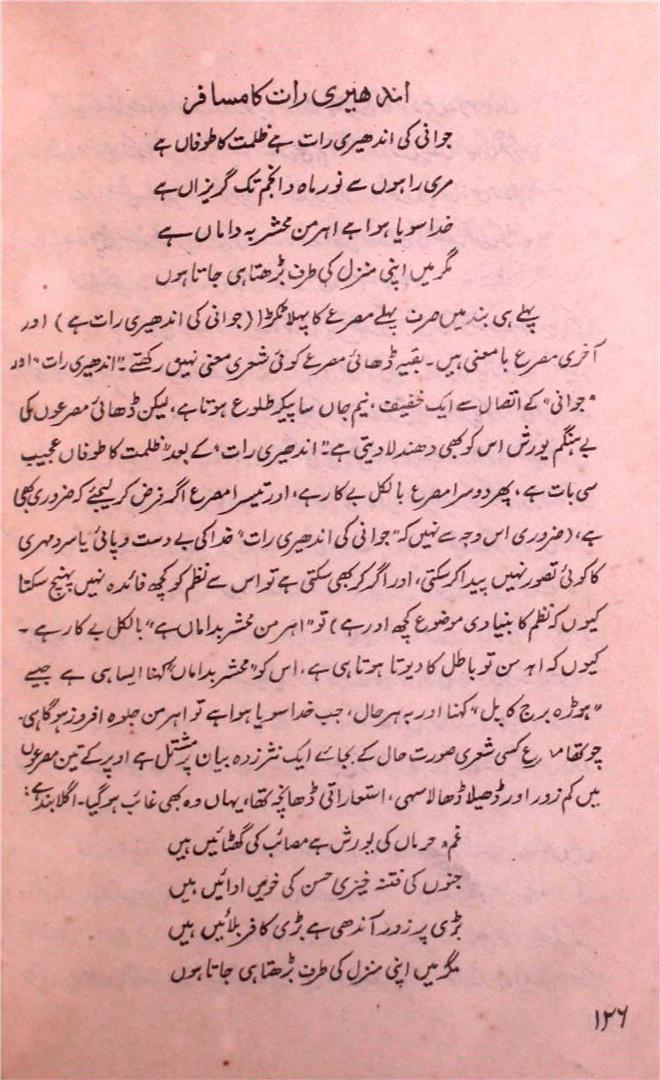 اندھیری رات کا مسافر
جوانی کی اندھیری رات ہے ظلمت کا طوفاں ہے
مری راہوں سے نور ماہ و انجم تک گریزاں ہے
خدا سویا ہوا ہے اہرمن محشر بہ داماں ہے
مگر میں اپنی منزل کی طرف بڑھتا ہی جاتا ہوں
پہلے ہی بند میں صرف پہلے مصرعے کا پہلا ٹکڑا (جوانی کی اندھیری رات ہے) اور
آخری مصرع بامعنی ہیں۔ بقیہ ڈھائی مصرعے کوئی شعری معنی نہیں رکھتے۔ "اندھیری رات" اور
"جوانی" کے اتصال سے ایک خفیف، نیم جاں سا پیکر طلوع ہوتا ہے، لیکن ڈھائی مصرعوں کی
بے ہنگم یورش اس کو بھی دھندلا دیتی ہے۔ "اندھیری رات" کے بعد "ظلمت کا طوفاں عجیب
سی بات ہے، پھر دوسرا مصرع بالکل بے کار ہے، اور تیسرا مصرع اگر فرض کر لیجئے کہ ضروری بھی
ہے، (ضروری اس وجہ سے نہیں کہ "جوانی کی اندھیری رات" خدا کی بے دست و پائی یا سرد مہری
کا کوئی تصور نہیں پیدا کر سکتی، اور اگر کر بھی سکتی ہے تو اس سے نظم کو کچھ فائدہ نہیں پہنچ سکتا
کیوں کہ نظم کا بنیادی موضوع کچھ اور ہے) تو "اہرمن محشر بداماں ہے" بالکل بے کار ہے۔
کیوں کہ اہرمن تو باطل کا دیوتا ہوتا ہی ہے، اس کو "محشر بداماں" کہنا ایسا ہی ہے جیسے
"ہوڑہ برج کا پل" کہنا اور بہ ہر حال، جب خدا سویا ہوا ہے تو اہرمن جلوہ افروز ہوگا ہی۔
چوتھا مصرع کسی شعری صورت حال کے بجائے ایک نثر زدہ بیان پر مشتمل ہے اوپر کے تین مصرعوں
میں کم زور اور ڈھیلا ڈھالا سہی، استعاراتی ڈھانچہ تھا، یہاں وہ بھی غائب ہو گیا۔ اگلا بند ہے:
غم و حرماں کی یورش ہے مصائب کی گھٹائیں ہیں
جنوں کی فتنہ خیزی حسن کی خونیں ادائیں ہیں
بڑی پر زور آندھی ہے بڑی کافر بلائیں ہیں
مگر میں اپنی منزل کی طرف بڑھتا ہی جاتا ہوں
۱۲۶